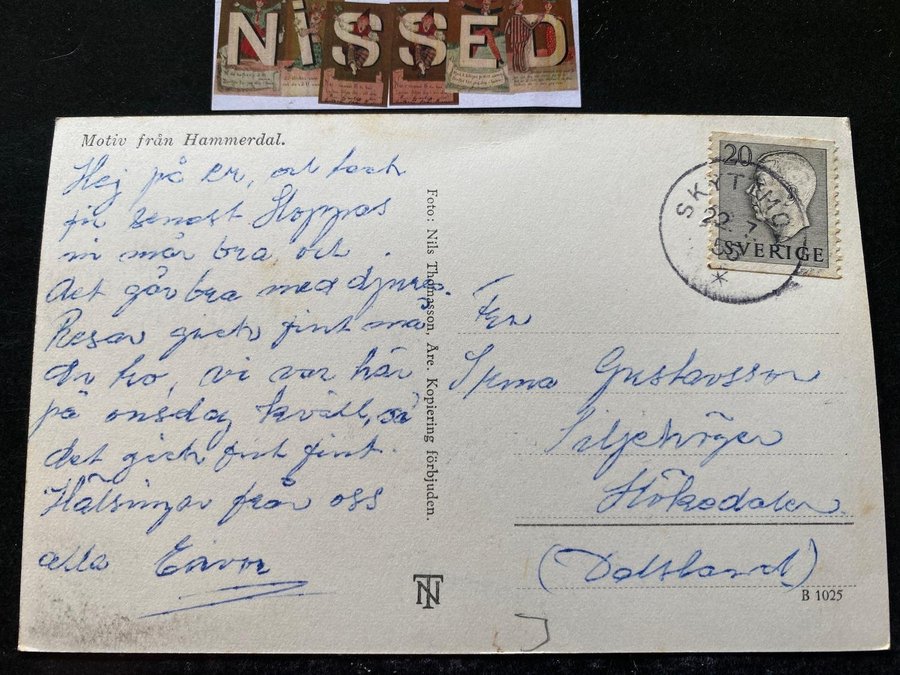 NiSSED
Motiv från Hammerdal.
Hej på er, och tack
för senast Hoppas
ni mår bra och
det går bra med djuren.
Resan gick fint må
du tro, vi var här
på onsdag kväll, så
det gick fint fint.
Hälsingar från oss
alla Eivor
Foto: Nils Thomasson, Åre. Kopiering förbjuden.
NT
20
SVERIGE
SKYTTMO
22. 7.
Fru
Irma Gustavsson
Liljekröjen
Hökedalen
(Dalsland)
B 1025